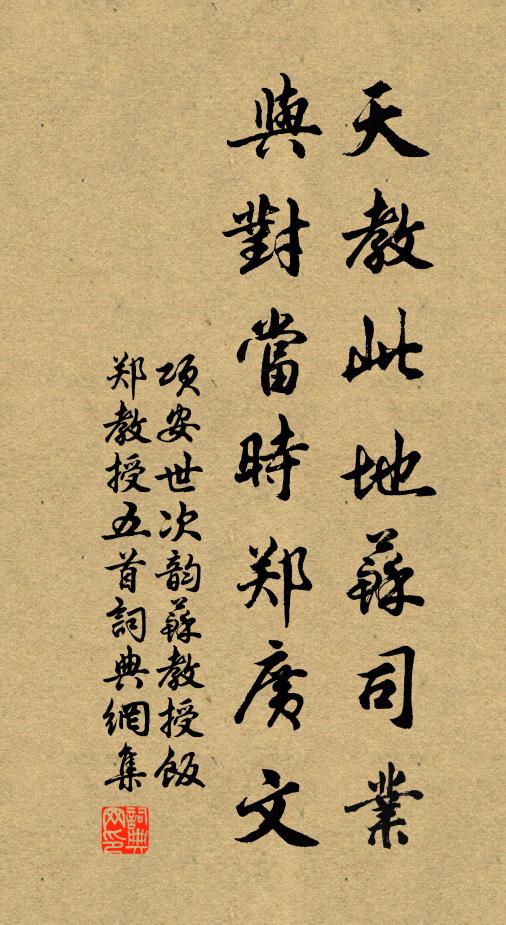 天教此地蘇司業
與對當時郑廣文
項安世次韵蘇教授飯
郑教授五首詞典網集
詞典网印